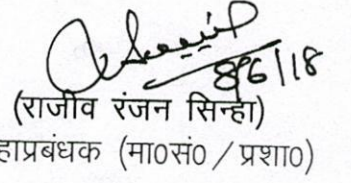 8/6/18
(राजीव रंजन सिन्हा)
हाप्रबंधक (मा०सं० / प्रशा०)